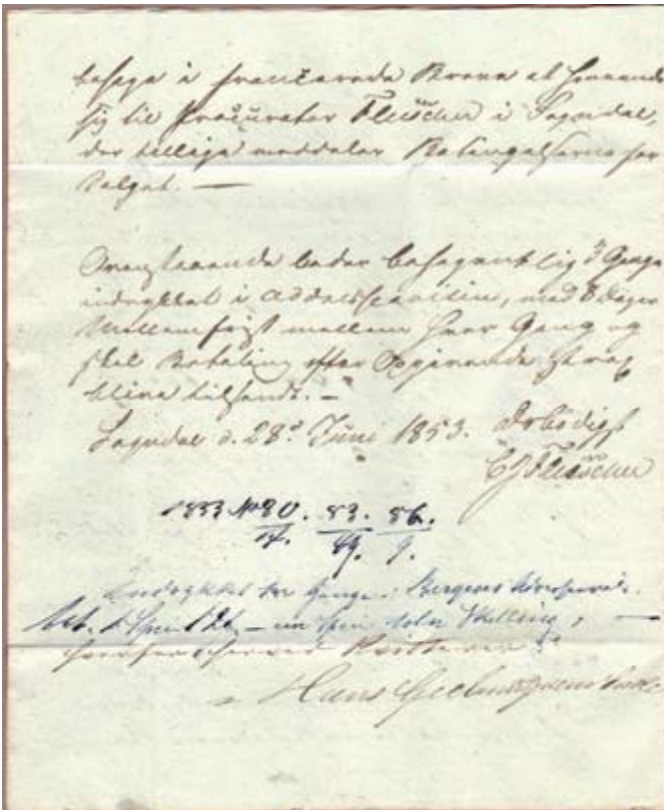 behage i francerede Breve at henvende
sig til Procurator Fleischer i Sogndal,
der tillige meddeler Betingelserne for
Salget. —
Ovenstaaende bedes behageligt 3 Gange
indrykket i Addresseavisen, med 8 Dages
Mellemfrist mellem hver Gang og
skal Betaling efter Opgivende strax
blive tilsendt. —
Sogndal d. 28d Juni 1853. Ærbødigst
CJFleischer
1853 No 80. 83. 86.
Indrykket tre Gange i Bergens
1 24 — een Spd. Skilling, —
hvorfor herved Kvitteres
Hans